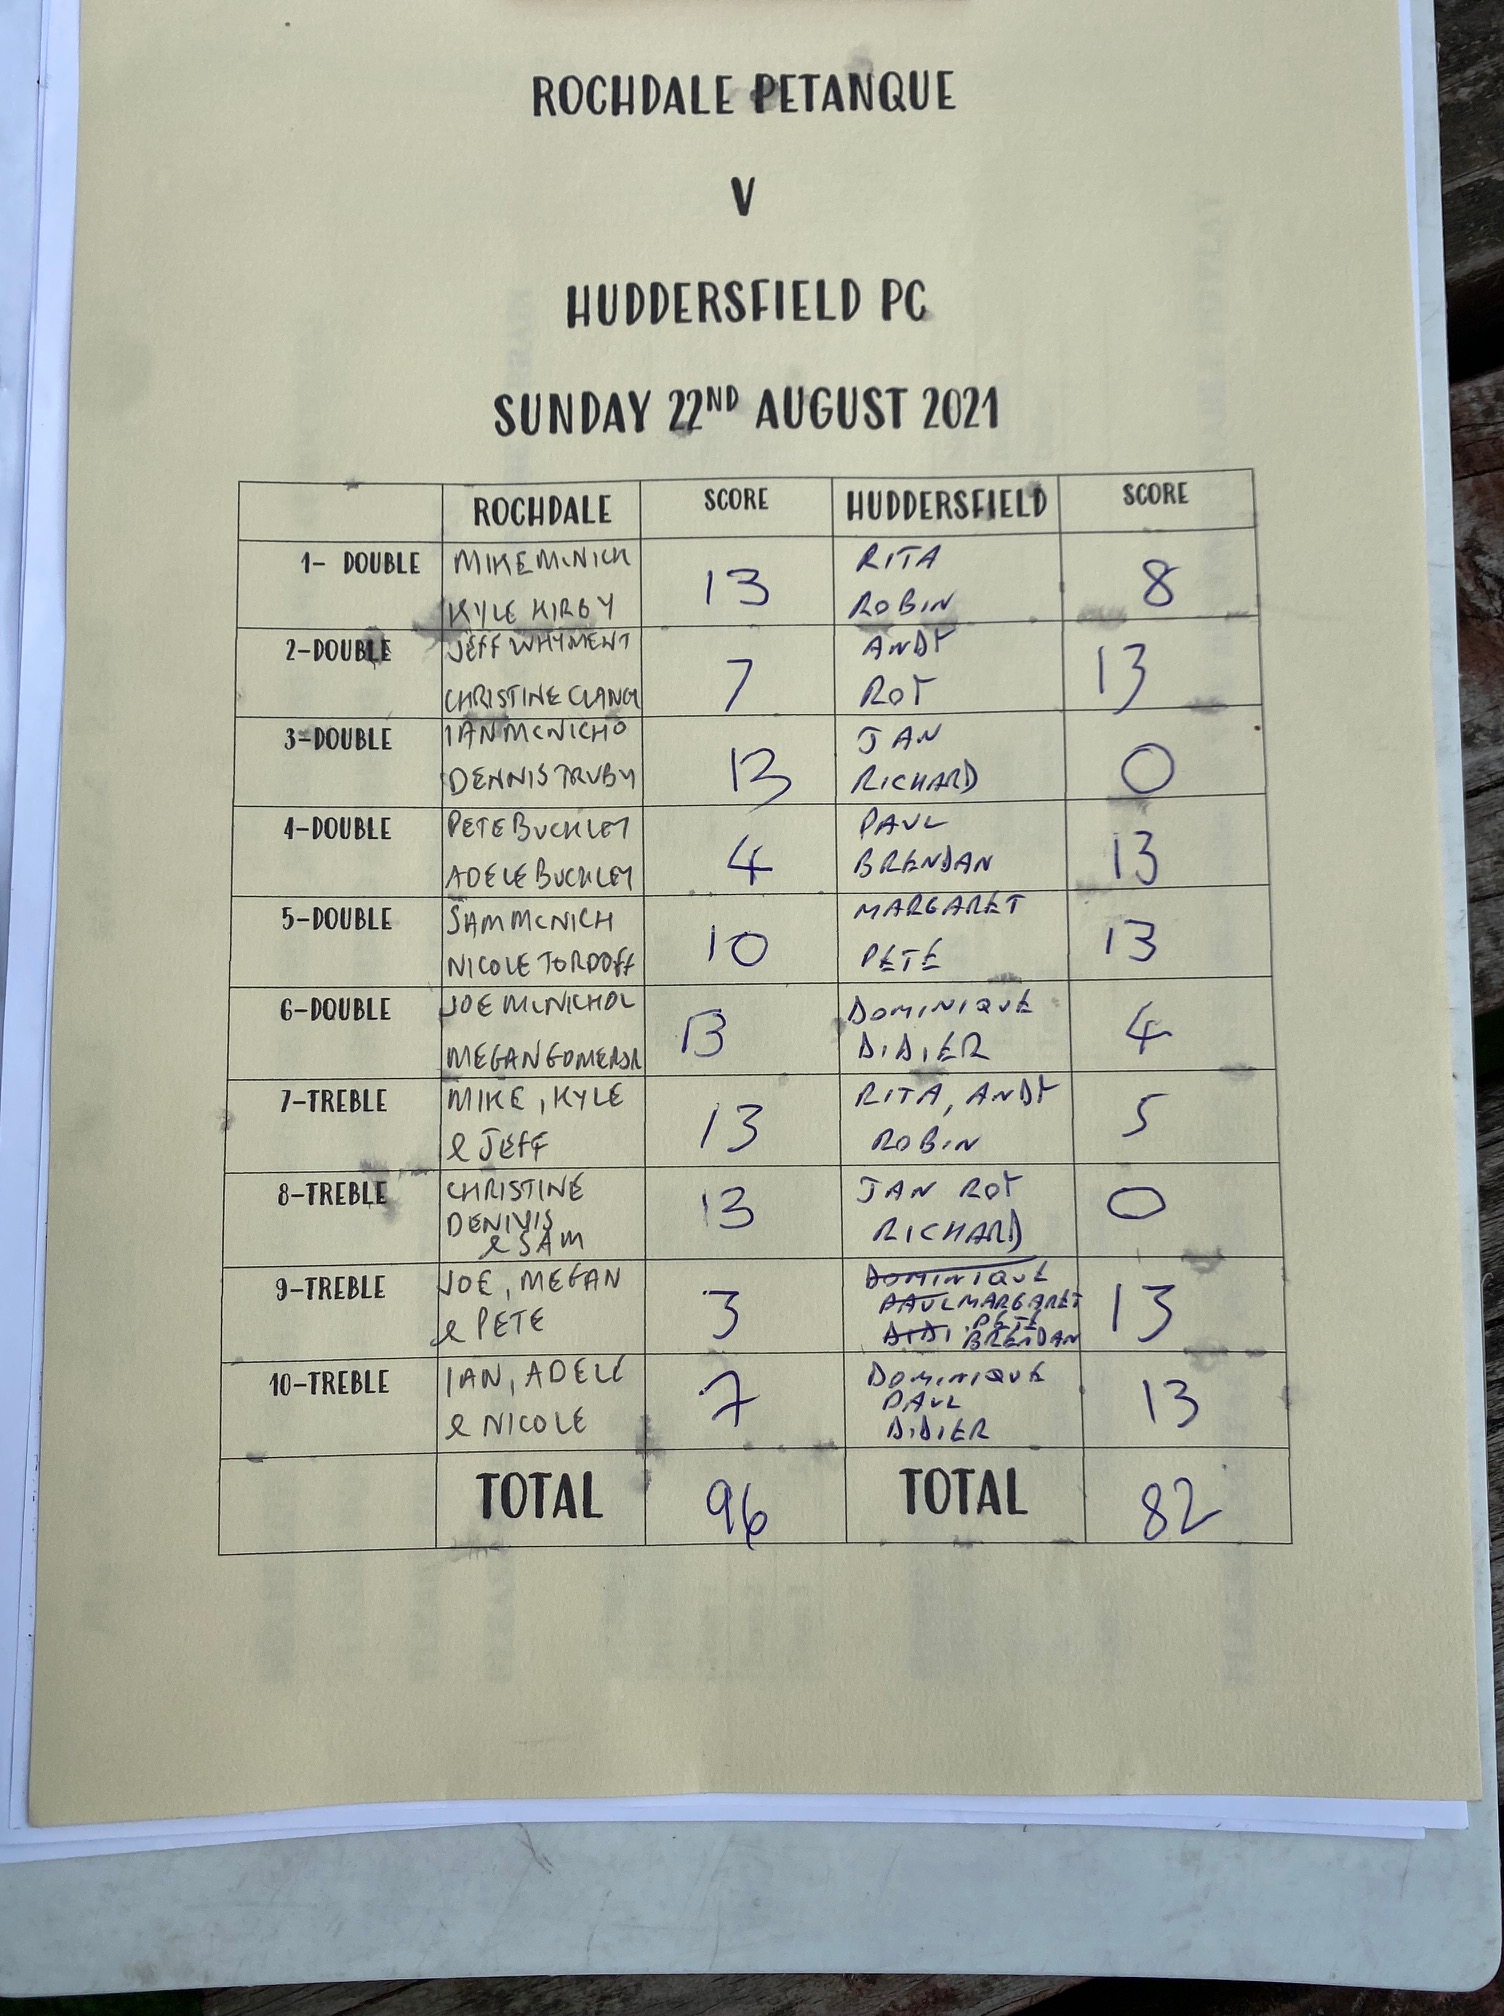 ROCHDALE PETANQUE
V
HUDDERSFIELD PC
SUNDAY 22ND AUGUST 2021
ROCHDALE SCORE HUDDERSFIELD SCORE
1- DOUBLE MIKE MCNICH 13 RITA 8
KYLE KIRBY ROBIN
2-DOUBLE JEFF WHYMENT 7 ANDY 13
CHRISTINE CLANCY ROY
3-DOUBLE IAN MCNICHO 13 JAN 0
DENNIS TRUBY RICHARD
4-DOUBLE PETE BUCKLEY 4 PAUL 13
ADELE BUCKLEY BRENDAN
5-DOUBLE SAM MCNICH 10 MARGARET 13
NICOLE TORDOFF PETE
6-DOUBLE JOE MCNICHOL 13 DOMINIQUE 4
MEGAN DIDIER
7-TREBLE MIKE, KYLE 13 RITA, ANDY 5
& JEFF ROBIN
8-TREBLE CHRISTINE 13 JAN ROY 0
DENNIS RICHARD
& SAM
9-TREBLE JOE, MEGAN 3 DOMINIQUE 13
& PETE PAUL MARGARET
PETE
DIDI BRENDAN
10-TREBLE IAN, ADELE 7 DOMINIQUE 13
& NICOLE PAUL
DIDIER
TOTAL 96 TOTAL 82